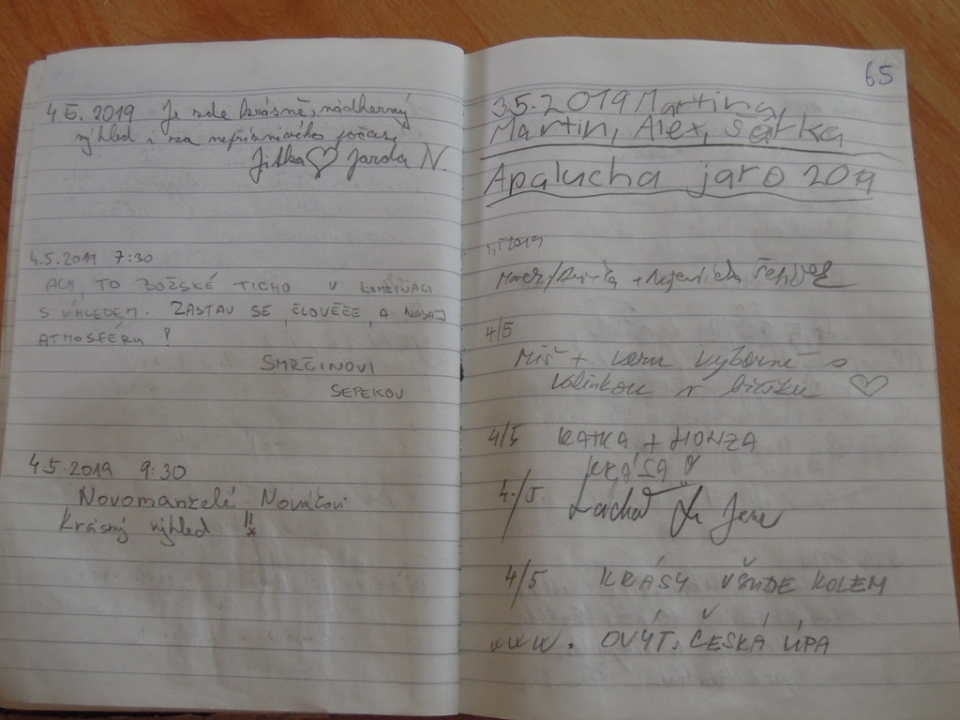 4.5.2019 Je zde krásně, nádherný
výhled i za nepříznivého počasí
Jitka ♡ Jarda N.
4.5.2019 7:30
ACH, TO BOŽSKÉ TICHO V KOMBINACI
S VÝHLEDEM. ZASTAV SE, ČLOVĚČE, A NASAJ
ATMOSFÉRU !
SMRČINOVI
SEPEKOV
4.5.2019 9:30
Novomanželé Nováčovi
Krásný výhled !!
65
3.5.2019 Martina,
Martin, Alex, Šárka
Apalucha jaro 2019
2019
4/5
Miš + výborné s
♡
4/5 KATKA + HONZA
KRÁSA
4./5.
4/5 KRÁSY VŠUDE KOLEM
www. OVÝT. ČESKÁ ÚPA